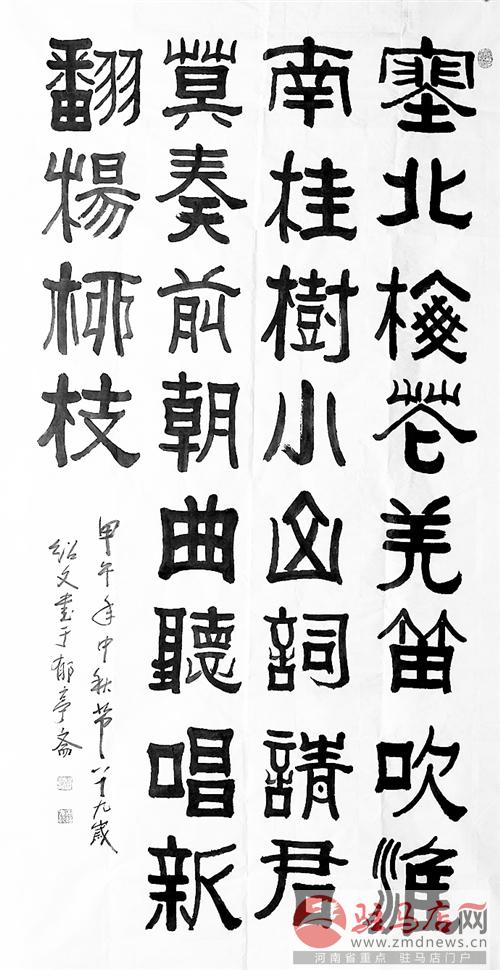 塞北梅花羌笛吹淮
南桂樹小山詞請君
莫奏前朝曲聽唱新
翻楊柳枝
甲午年中秋节八十九歲
绍文書于郁亭斋
驻马店网
www.zmdnews.cn
河南省重点 驻马店门户